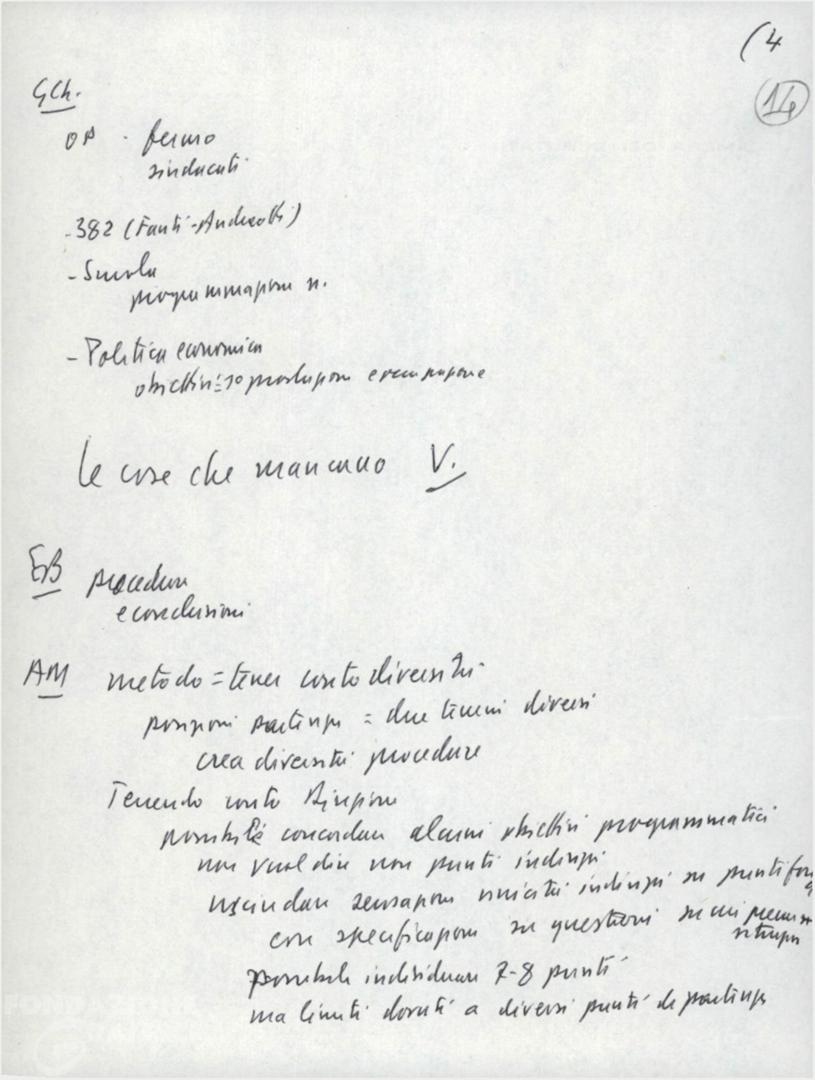 (4
14
GCh.
OP - fermo
sindacati
- 382 (Fanti-Andreotti)
- Scuola
programmazione
- Politica economica
obiettivi = produzione e occupazione
le cose che mancano V.
EB procedure
e conclusioni
AM metodo = tener conto diversità
posizioni partenza = due terreni diversi
crea diversità procedure
Tenendo conto
possibile concordare alcuni obiettivi programmatici
non vuol dire non punti indirizzi
unicità indirizzi su punti
con specificazione su questioni su cui
possibile individuare 7-8 punti
ma limiti dovuti a diversi punti di partenza
FONDAZIONE